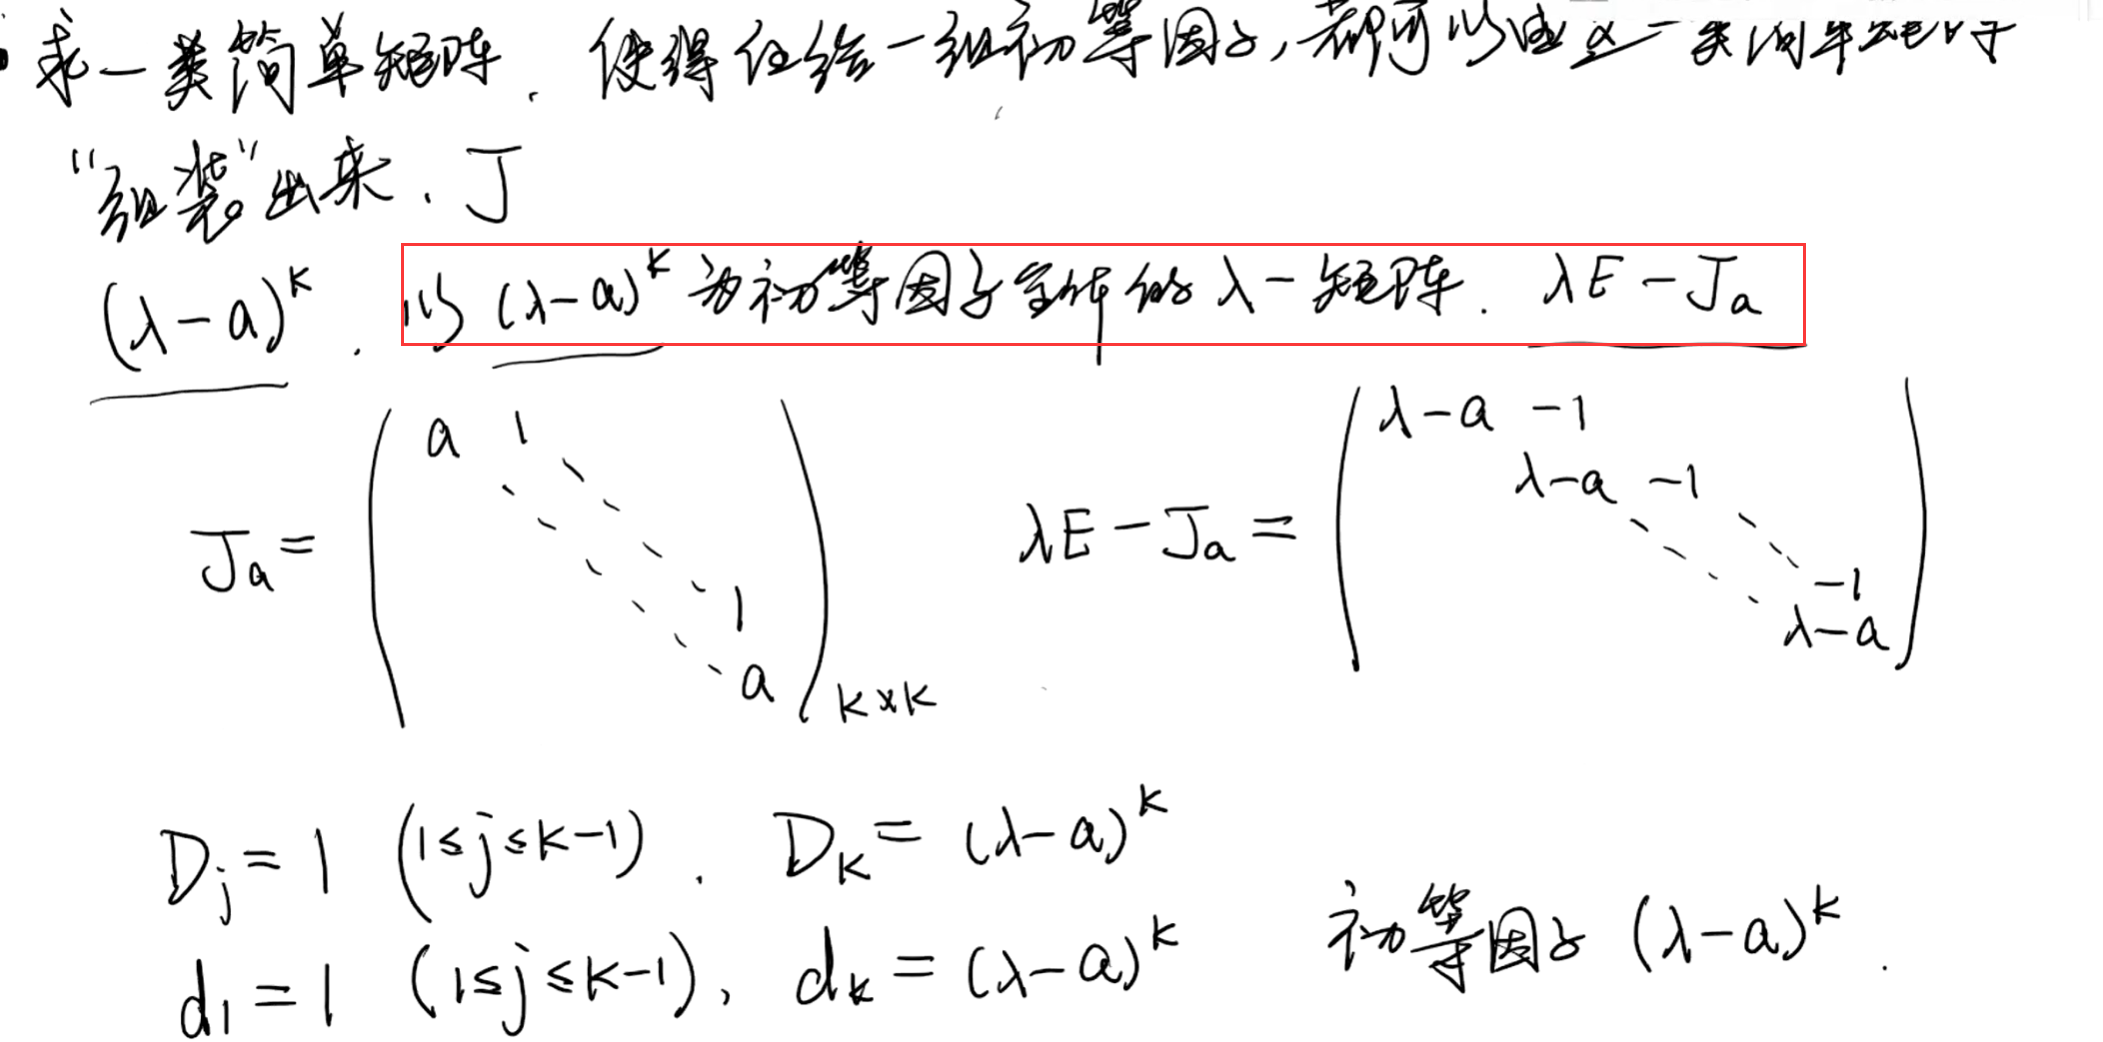 求一类简单矩阵. 使得任给一组初等因子,都可以由这一类简单矩阵
"组装"出来. J
(λ-a)^k. 以 (λ-a)^k 为初等因子全体的 λ-矩阵. λE-J_a
J_a = ( a 1 ⋱ ⋱ 1 a )_{k×k} λE-J_a = ( λ-a -1 λ-a -1 ⋱ ⋱ -1 λ-a )
D_j = 1 (1≤j≤k-1). D_k = (λ-a)^k
d_1 = 1 (1≤j≤k-1), d_k = (λ-a)^k 初等因子 (λ-a)^k.